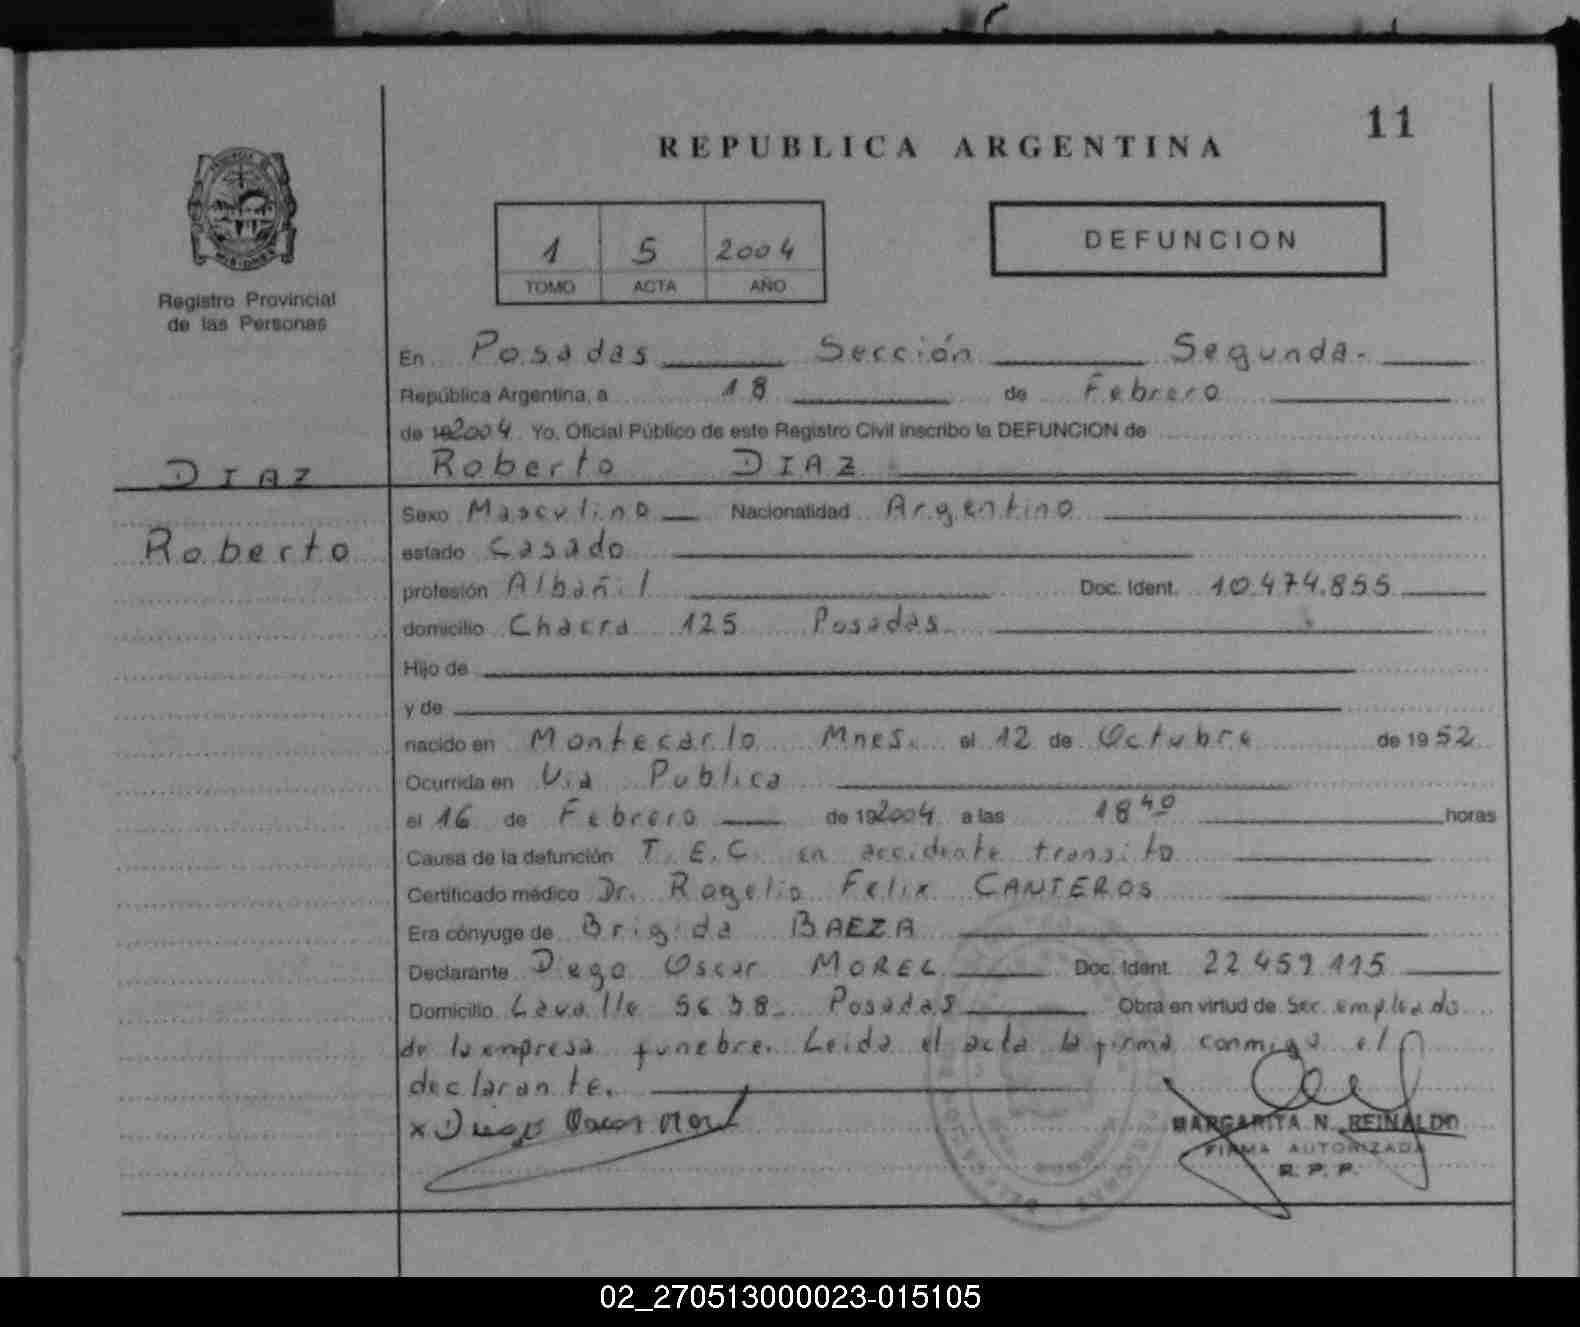 11
REPUBLICA ARGENTINA
MISIONES
Registro Provincial
de las Personas
1 5 2004
TOMO ACTA AÑO
DEFUNCION
En Posadas Sección Segunda.
República Argentina, a 18 de Febrero
de 192004 Yo, Oficial Público de este Registro Civil inscribo la DEFUNCION de
DIAZ
Roberto DIAZ
Sexo Masculino Nacionalidad Argentino
Roberto
estado Casado
profesión Albañil Doc. Ident. 10.474.855
domicilio Chacra 125 Posadas
Hijo de
y de
nacido en Montecarlo Mnes. el 12 de Octubre de 1952
Ocurrida en Via Publica
el 16 de Febrero de 192004 a las 18 40 horas
Causa de la defunción T.E.C. en accidente transito
Certificado médico Dr. Rogelio Felix CANTEROS
Era cónyuge de Brigida BAEZA
Declarante Diego Oscar MOREL Doc. Ident. 22459115
Domicilio Lavalle 5638 Posadas Obra en virtud de Ser empleado
de la empresa funebre. Leida el acta la firma conmigo el
declarante.
x Diego Oscar Morel
MARGARITA N. REINALDO
FIRMA AUTORIZADA
R. P. P.
02_270513000023-015105